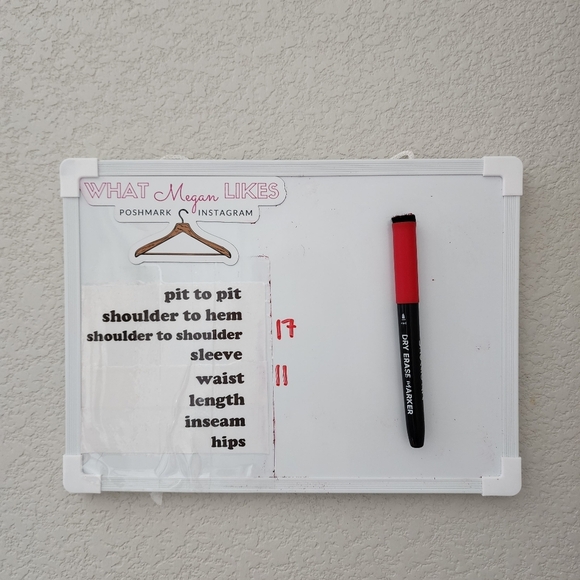 WHAT Megan LIKES
POSHMARK INSTAGRAM
pit to pit
shoulder to hem
shoulder to shoulder 17
sleeve
waist 11
length
inseam
hips
DRY ERASE MARKER